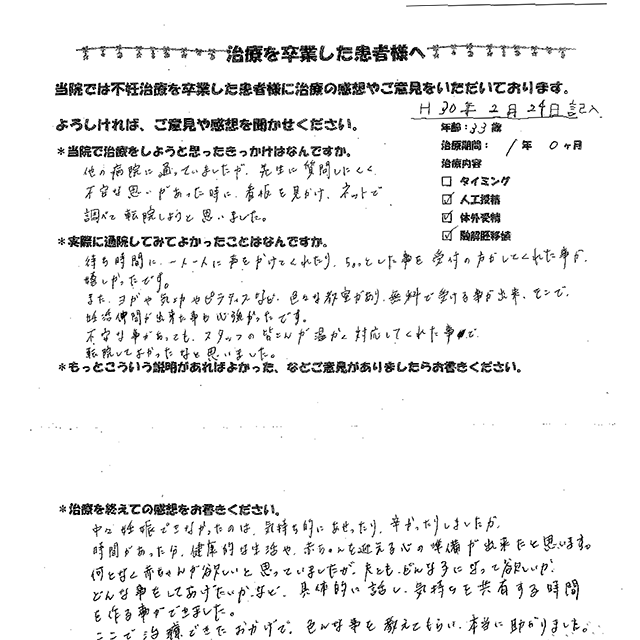 治療を卒業した患者様へ
当院では不妊治療を卒業した患者様に治療の感想やご意見をいただいております。
H 30年 2月 24日 記入
よろしければ、ご意見や感想を聞かせください。
年齢：33歳
＊当院で治療をしようと思ったきっかけはなんですか。
治療期間： 1年 0ヶ月
他の病院に通っていましたが、先生に質問しにくく
治療内容
不安な思いがあった時に、看板を見かけ、ネットで
□ タイミング
調べて転院しようと思いました。
☑ 人工授精
☑ 体外受精
☑ 融解胚移植
＊実際に通院してみてよかったことはなんですか。
待ち時間に、一人一人に声をかけてくれたり、ちょっとした事を受付の方がしてくれた事が
嬉しかったです。
また、ヨガや気功やピラティスなど、色々な教室があり、無料で受ける事が出来、そこで、
妊活仲間が出来た事も心強かったです。
不安な事があっても、スタッフの皆さんが温かく対応してくれた事で
転院してよかったなと思いました。
＊もっとこういう説明があればよかった、などご意見がありましたらお書きください。
＊治療を終えての感想をお書きください。
中々妊娠できなかったのは、気持ち的にあせったり、辛かったりしましたが、
時間があった分、健康的な生活や、赤ちゃんを迎える心の準備が出来たと思います。
何となく赤ちゃんが欲しいと思っていましたが、夫とも、どんな子になって欲しいか、
どんな事をしてあげたいか、など、具体的に話し、気持ちを共有する時間
を作る事ができました。
ここで治療できたおかげで、色んな事を教えてもらい、本当に助かりました。